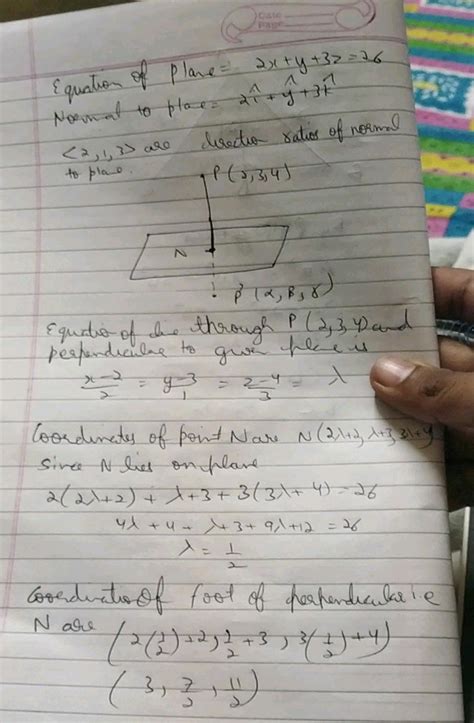 Date
Page
Equation of plane = 2x+y+3z=26
Normal to plane = 2î + ŷ + 3k̂
<2,1,3> are direction ratios of normal
to plane.
P(2,3,4)
N
P'(α, β, γ)
Equation of line through P(2,3,4) and
perpendicular to given plane is
x-2/2 = y-3/1 = z-4/3 = λ
Coordinates of point N are N(2λ+2, λ+3, 3λ+4
Since N lies on plane
2(2λ+2) + λ+3 + 3(3λ+4) = 26
4λ+4+ λ+3+9λ+12 = 26
λ = 1/2
Coordinates of foot of perpendicular i.e
N are (2(1/2)+2, 1/2+3, 3(1/2)+4)
(3, 7/2, 11/2)